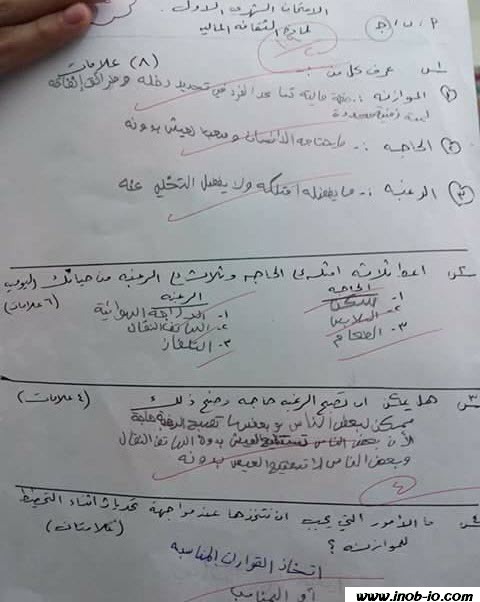 الامتحان الشهري الاول
لمادة الثقافة المالية
س١ عرف كل من (٨) علامات
١ الموازنة :. خطة مالية تساعد الفرد في تحديد دخله ومرافق إنفاقه
لمدة زمنية محددة
٢ الحاجه :. ما يحتاجه الانسان ويصعب العيش بدونه
٣ الرغبه :. ما يفضله امتلكه ولا يفضل التخلي عنه
س٢ اعط ثلاثه امثله على الحاجه وثلاث على الرغبه من حياتك اليوميه
(٦ علامات)
الحاجه الرغبه
١. السكن ١. الدراجة الهوائية
٢. الملابس ٢. الهاتف النقال
٣. الطعام ٣. التلفاز
س٣ هل يمكن ان تصبح الرغبه حاجه وضح ذلك (٤ علامات)
ممكن لبعض الناس تصبح الرغبة حاجة
لأن بعض الناس تستطيع العيش بدون الهاتف النقال
وبعض الناس لا تستطيع العيش بدونه
٤
س٤ ما الأمور التي يجب ان نتخذها عند مواجهة تحديات اثناء التخطيط
للموازنه ؟ (علامتان)
اتخاذ القرارات المناسبه
www.inob-io.com